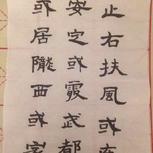 止右扶風或在
安定或處武都
或居隴西或家